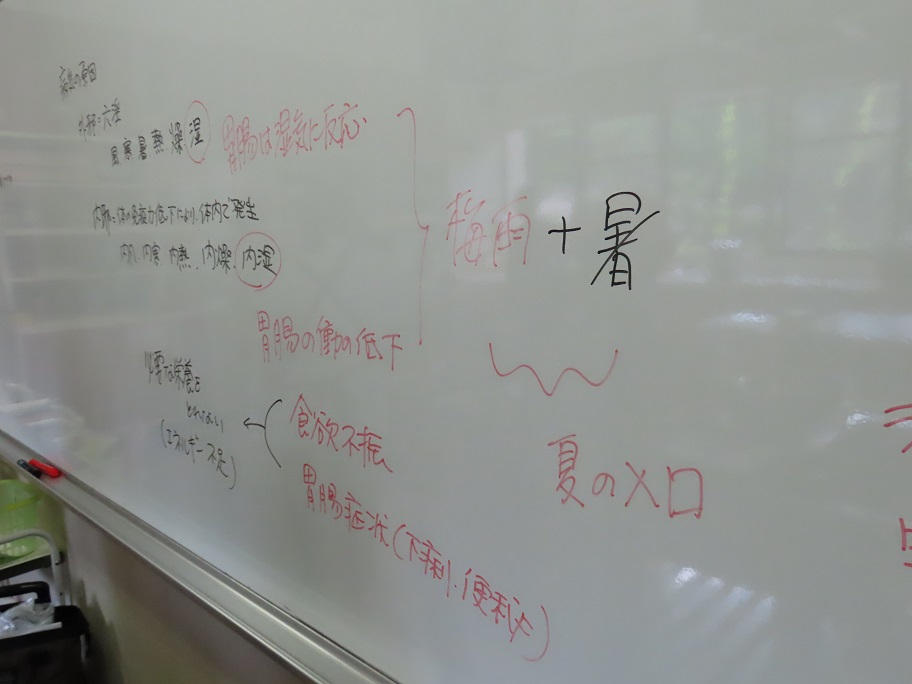 病気の原因
外邪=六淫
風寒暑熱燥湿
胃腸は湿気に反応
内邪=体の免疫力低下により、体内で発生
内風、内寒、内熱、内燥、内湿
胃腸の働の低下
梅雨+暑
夏の入口
必要な栄養を
とれない
(エネルギー不足)
食欲不振
胃腸症状(下痢・便秘)